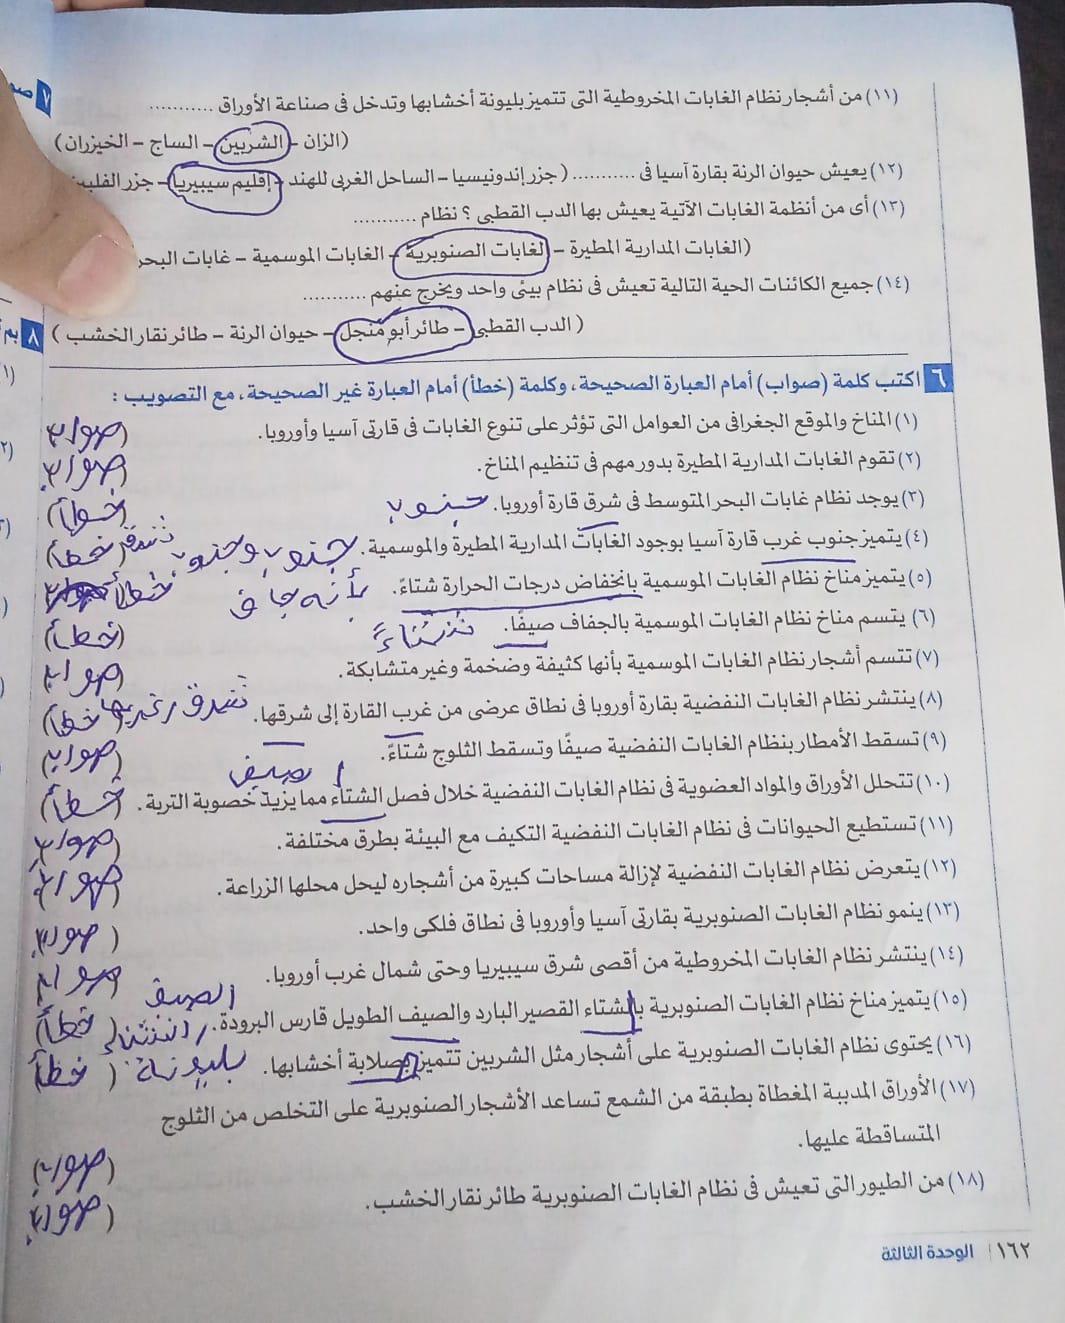 (١١) من أشجار نظام الغابات المخروطية التى تتميز بليونة أخشابها وتدخل فى صناعة الأوراق ..........
(الزان - الشربين - الساج - الخيزران)
(١٢) يعيش حيوان الرنة بقارة آسيا فى ........... (جزر إندونيسيا - الساحل الغربى للهند - إقليم سيبيريا - جزر
(١٣) أى من أنظمة الغابات الآتية يعيش بها الدب القطبى؟ نظام ...........
(الغابات المدارية المطيرة - الغابات الصنوبرية - الغابات الموسمية - غابات
(١٤) جميع الكائنات الحية التالية تعيش فى نظام بيئى واحد ويخرج عنهم ...........
(الدب القطبى - طائر أبو منجل - حيوان الرنة - طائر نقار الخشب)
٦ اكتب كلمة (صواب) أمام العبارة الصحيحة، وكلمة (خطأ) أمام العبارة غير الصحيحة، مع التصويب :
(١) المناخ والموقع الجغرافى من العوامل التى تؤثر على تنوع الغابات فى قارتى آسيا وأوروبا. (صواب)
(٢) تقوم الغابات المدارية المطيرة بدور مهم فى تنظيم المناخ. (صواب)
(٣) يوجد نظام غابات البحر المتوسط فى شرق قارة أوروبا. جنوب (خطأ)
(٤) يتميز جنوب غرب قارة آسيا بوجود الغابات المدارية المطيرة والموسمية. جنوب وجنوب شرق (خطأ)
(٥) يتميز مناخ نظام الغابات الموسمية بانخفاض درجات الحرارة شتاءً. بأنه جاف خطأ
(٦) يتسم مناخ نظام الغابات الموسمية بالجفاف صيفًا. شتاءً (خطأ)
(٧) تتسم أشجار نظام الغابات الموسمية بأنها كثيفة وضخمة وغير متشابكة. (صواب)
(٨) ينتشر نظام الغابات النفضية بقارة أوروبا فى نطاق عرضى من غرب القارة إلى شرقها. شرق غربها (خطأ)
(٩) تسقط الأمطار بنظام الغابات النفضية صيفًا وتسقط الثلوج شتاءً. (صواب)
(١٠) تتحلل الأوراق والمواد العضوية فى نظام الغابات النفضية خلال فصل الشتاء مما يزيد خصوبة التربة. (خطأ)
(١١) تستطيع الحيوانات فى نظام الغابات النفضية التكيف مع البيئة بطرق مختلفة. (صواب)
(١٢) يتعرض نظام الغابات النفضية لإزالة مساحات كبيرة من أشجاره ليحل محلها الزراعة. (صواب)
(١٣) ينمو نظام الغابات الصنوبرية بقارتى آسيا وأوروبا فى نطاق فلكى واحد. (صواب)
(١٤) ينتشر نظام الغابات المخروطية من أقصى شرق سيبيريا وحتى شمال غرب أوروبا. (صواب)
الصيف
(١٥) يتميز مناخ نظام الغابات الصنوبرية بالشتاء القصير البارد والصيف الطويل قارس البرودة. الشتاء (خطأ)
(١٦) يحتوى نظام الغابات الصنوبرية على أشجار مثل الشربين تتميز بصلابة أخشابها. بليونة (خطأ)
(١٧) الأوراق المدببة المغطاة بطبقة من الشمع تساعد الأشجار الصنوبرية على التخلص من الثلوج
المتساقطة عليها. (صواب)
(١٨) من الطيور التى تعيش فى نظام الغابات الصنوبرية طائر نقار الخشب. (صواب)
١٦٢ | الوحدة الثالثة